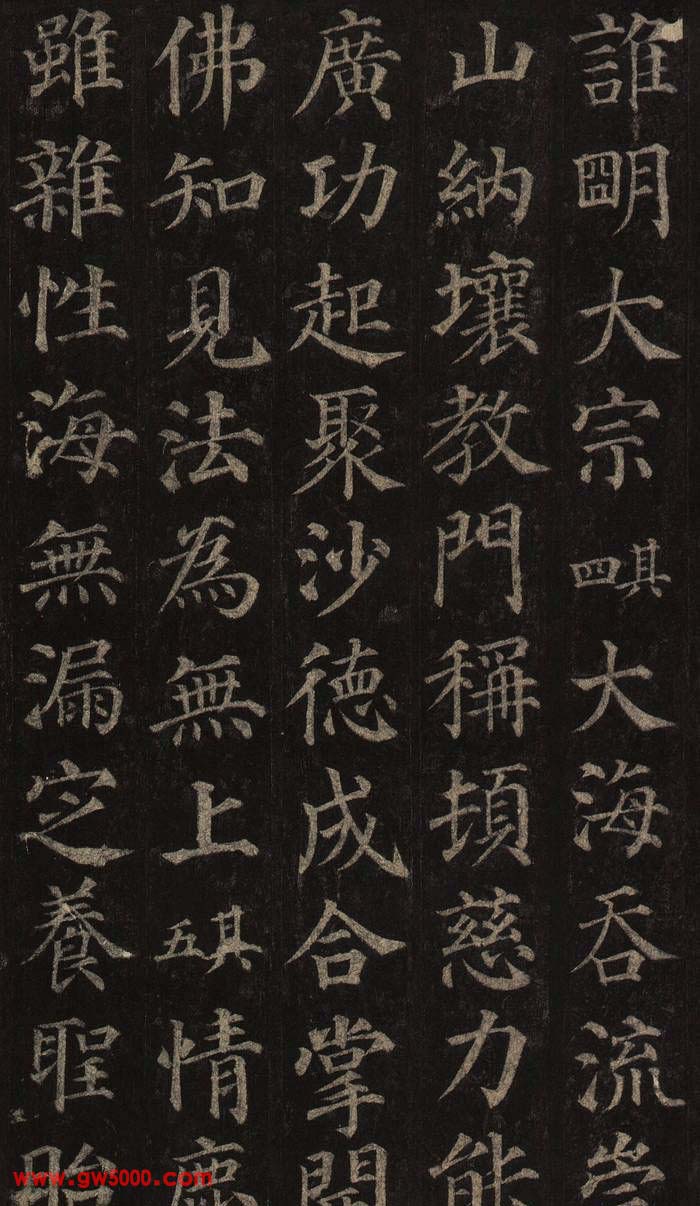 誰朙大宗其四大海吞流崇
山納壤教門稱頓慈力能
廣功起聚沙德成合掌開
佛知見法為無上其五情塵
雖雜性海無漏定養聖胎
www.gw5000.com